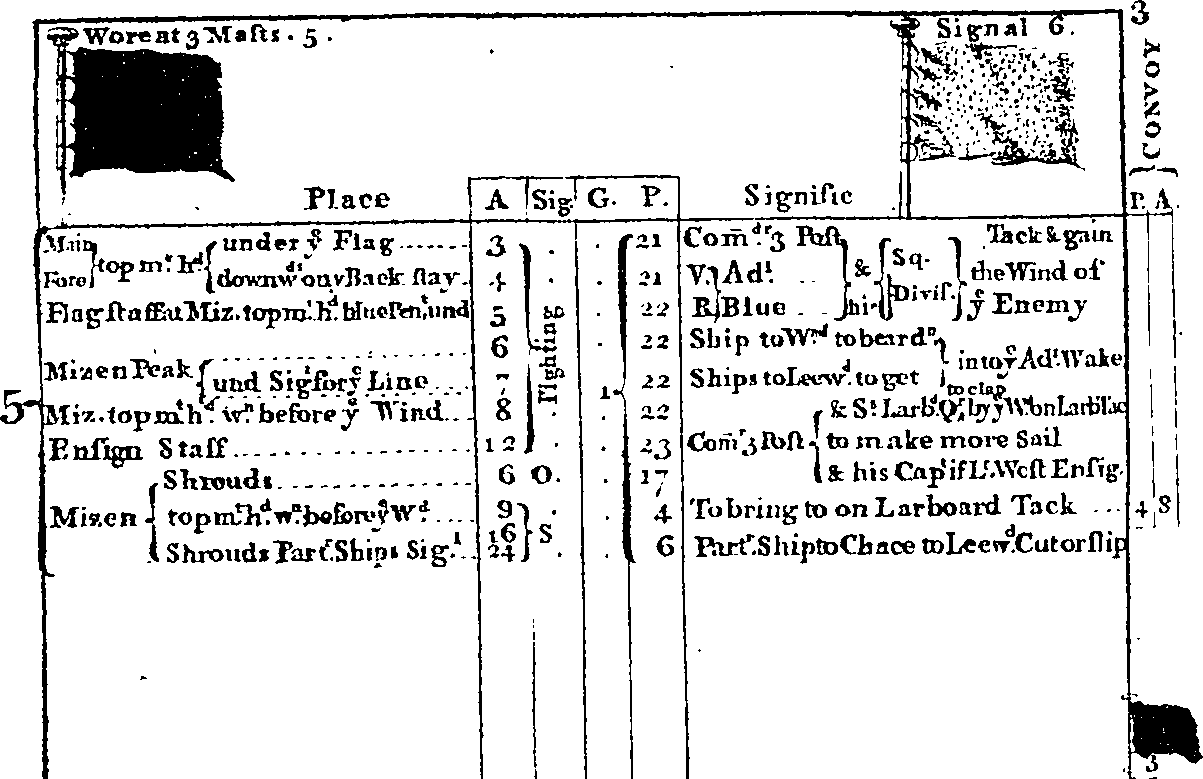 Worn at 3 Masts . 5 .
Signal 6.
3
CONVOY
Place A Sig G. P. Signific P. A.
Main Fore } top m.t h.d { under y.e Flag ....... 3 . . 21 Com̄.dr 3 Post
downw.ds on y Back stay . 4 . . 21 V. } Ad.l
& his { Sq. Divis. } Tack & gain the Wind of y.e Enemy
Flagstaff at Miz. top m.t h.d blue Pen.t und 5 . 22 R. } Blue
Fighting
6 . 22 Ship to W.rd to beard.n
Mizen Peak { und Sig.l for y.e Line ... 7 1 . 22 Ships to Leew.d to get } into y.e Ad.l Wake
5 Miz. top m.t h.d w.n before y.e Wind ... 8 . . 22 & S.t Larb.d Q.r by y.e W.
to clap
Ensign Staff ............ 12 . . 23 Com.r 3 Post { to make more Sail
Mizen { Shrouds ............ 6 O. . 17 & his Cap.t if L.t West Ensig.
top m.t h.d w.n before y.e W.d .... 9 . . 4 To bring to on Larboard Tack ... 4 8
Shrouds Part.r Ships Sig.l 16 24 } S . . 6 Part.r Ship to Chace to Leew.d Cut or slip
3